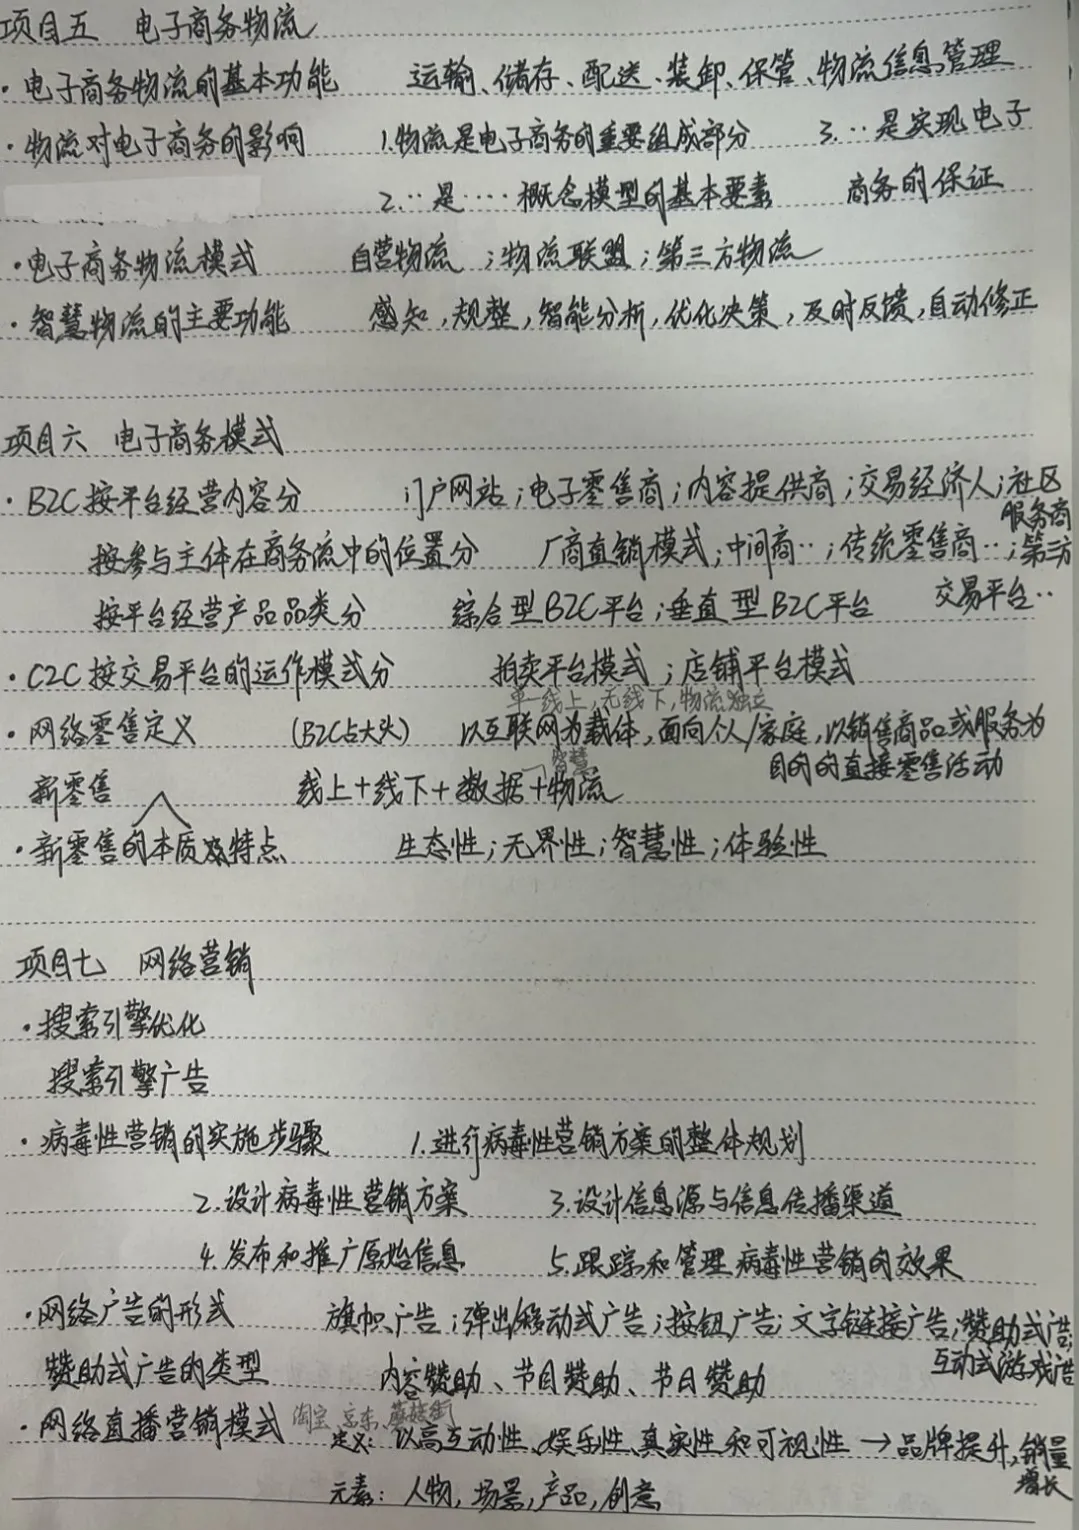 项目五 电子商务物流
·电子商务物流的基本功能 运输、储存、配送、装卸、保管、物流信息管理
·物流对电子商务的影响 1.物流是电子商务的重要组成部分 3.··是实现电子
2.··是····概念模型的基本要素 商务的保证
·电子商务物流模式 自营物流；物流联盟；第三方物流
·智慧物流的主要功能 感知,规整,智能分析,优化决策,及时反馈,自动修正
项目六 电子商务模式
·B2C按平台经营内容分 门户网站；电子零售商；内容提供商；交易经济人；社区
服务商
按参与主体在商务流中的位置分 厂商直销模式；中间商··；传统零售商··；第三方
交易平台··
按平台经营产品品类分 综合型B2C平台；垂直型B2C平台
·C2C按交易平台的运作模式分 拍卖平台模式；店铺平台模式
单一线上,无线下,物流独立
·网络零售定义 (B2C占大头) 以互联网为载体,面向个人/家庭,以销售商品或服务为
目的的直接零售活动
智慧
新零售 线上+线下+数据+物流
·新零售的本质及特点 生态性；无界性；智慧性；体验性
项目七 网络营销
·搜索引擎优化
搜索引擎广告
·病毒性营销的实施步骤 1.进行病毒性营销方案的整体规划
2.设计病毒性营销方案 3.设计信息源与信息传播渠道
4.发布和推广原始信息 5.跟踪和管理病毒性营销的效果
·网络广告的形式 旗帜广告；弹出/移动式广告；按钮广告；文字链接广告；赞助式广告；
互动式游戏广告
赞助式广告的类型 内容赞助、节目赞助、节日赞助
·网络直播营销模式 淘宝 京东 蘑菇街
定义：以高互动性、娱乐性、真实性和可视性→品牌提升,销量
增长
元素：人物,场景,产品,创意